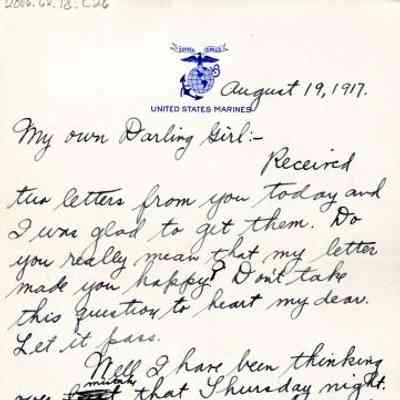 2006.60.18.C26
SEMPER FIDELIS
UNITED STATES MARINES
August 19, 1917.
My own Darling Girl:-
Received
two letters from you today and
I was glad to get them. Do
you really mean that my letter
made you happy? Don't take
this question to heart my dear.
Let it pass.
Well I have been thinking
over that Thursday night.